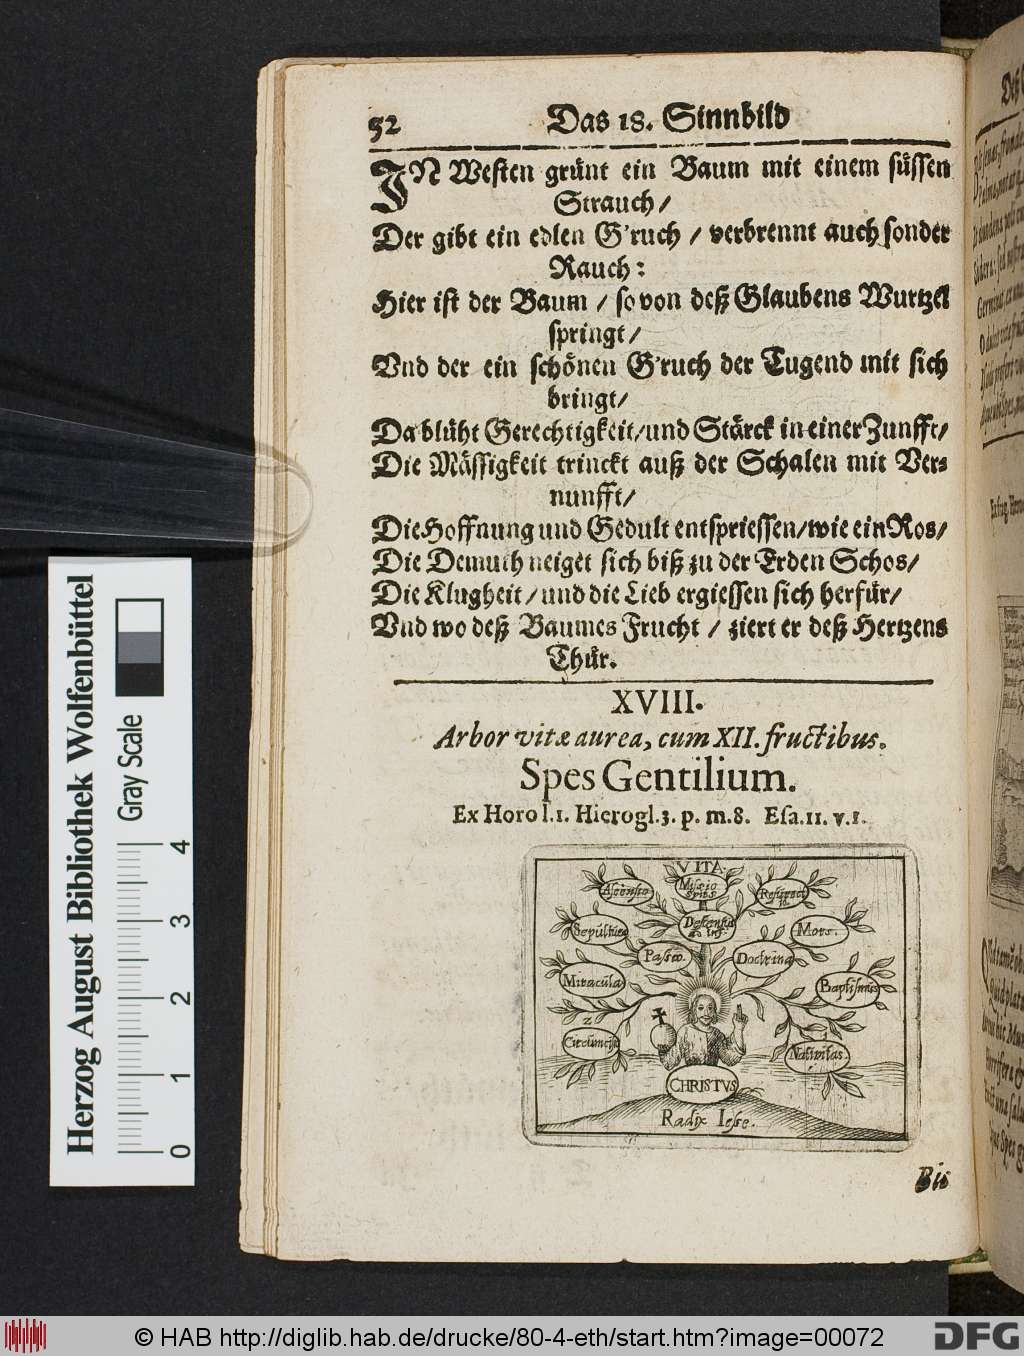 52 Das 18. Sinnbild
IN Westen grünt ein Baum mit einem süssen
Strauch/
Der gibt ein edlen G'ruch / verbrennt auch sonder
Rauch:
Hier ist der Baum / so von deß Glaubens Wurtzel
springt/
Vnd der ein schönen G'ruch der Tugend mit sich
bringt/
Da blüht Gerechtigkeit/und Stärck in einer Zunfft/
Die Mässigkeit trinckt auß der Schalen mit Ver-
nunfft/
Die Hoffnung und Gedult entspriessen/wie ein Ros/
Die Demuth neiget sich biß zu der Erden Schos/
Die Klugheit / und die Lieb ergiessen sich herfür/
Vnd wo deß Baumes Frucht / ziert er deß Hertzens
Thür.
XVIII.
Arbor vitæ aurea, cum XII. fructibus.
Spes Gentilium.
Ex Horo l.1. Hierogl.3. p. m.8. Esa.11. v.1.
VITA.
Ascensio
Missio
Resurrect
Sepultura
Descensus
ad inf.
Mors.
Passio.
Doctrina
Miracula
Baptismus
2
Circumcis
Nativitas.
CHRISTVS
Radix Iesse.
Herzog August Bibliothek Wolfenbüttel
Gray Scale
0 1 2 3 4
© HAB http://diglib.hab.de/drucke/80-4-eth/start.htm?image=00072
DFG